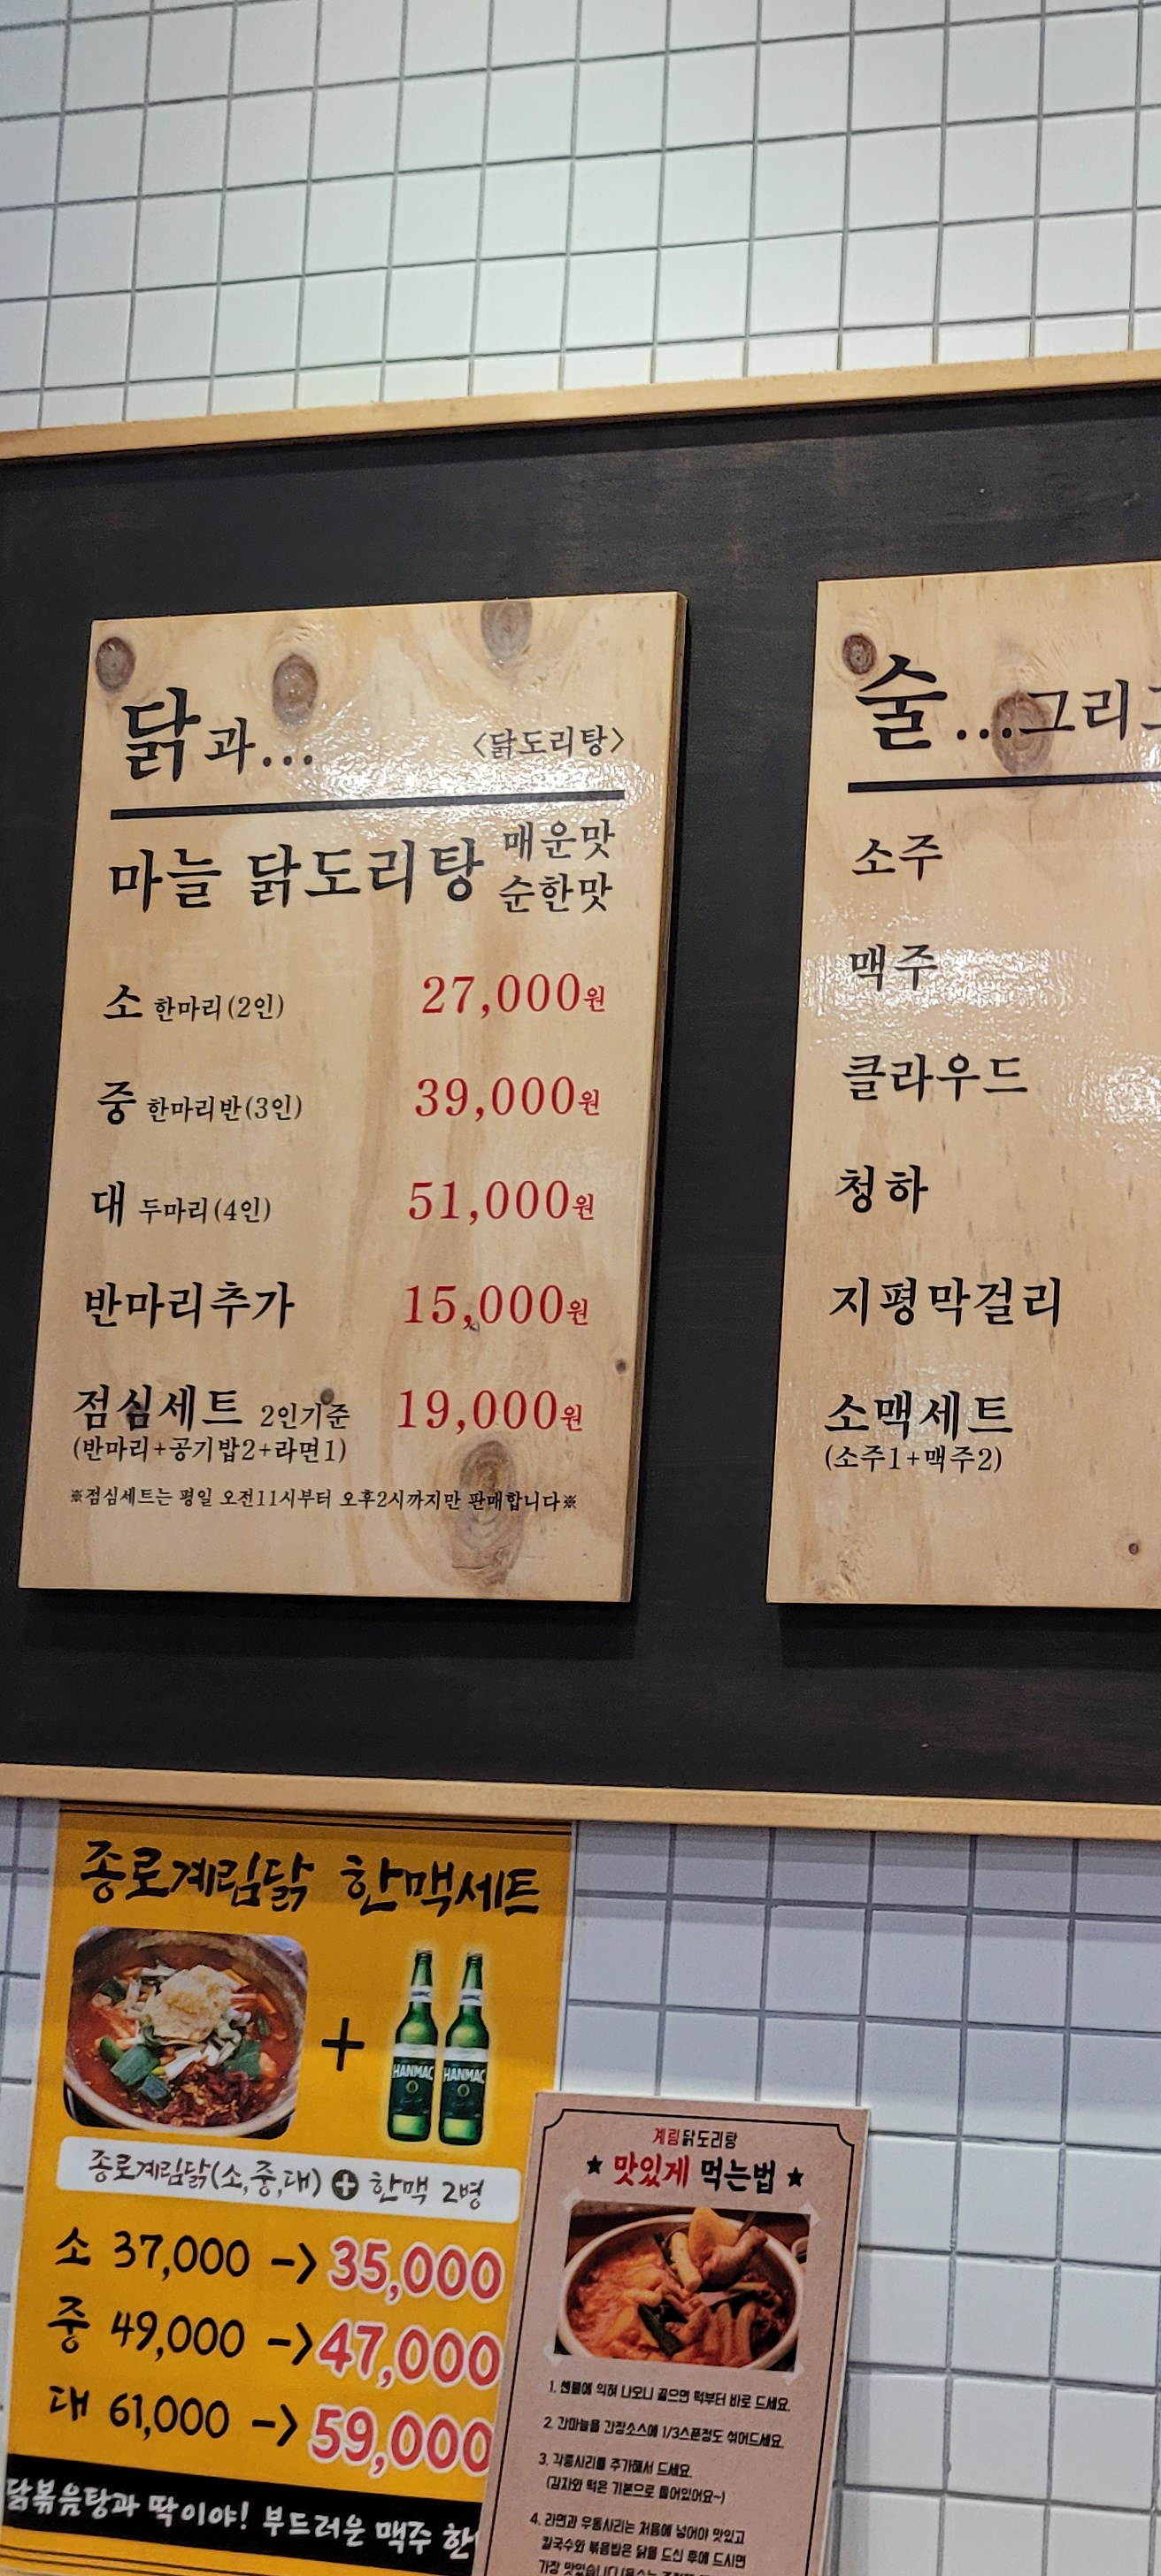 닭과... <닭도리탕>
마늘 닭도리탕 매운맛 순한맛
소 한마리(2인) 27,000원
중 한마리반(3인) 39,000원
대 두마리(4인) 51,000원
반마리추가 15,000원
점심세트 2인기준 19,000원
(반마리+공기밥2+라면1)
※점심세트는 평일 오전11시부터 오후2시까지만 판매합니다※
술...그리
소주
맥주
클라우드
청하
지평막걸리
소맥세트
(소주1+맥주2)
종로계림닭 한맥세트
+
HANMAC HANMAC
종로계림닭(소,중,대) + 한맥 2병
소 37,000 -> 35,000
중 49,000 -> 47,000
대 61,000 -> 59,000
닭볶음탕과 딱이야! 부드러운 맥주 한
계림닭도리탕
★ 맛있게 먹는법 ★
1. 센불에 익혀 나오니 끓으면 떡부터 바로 드세요.
2. 간마늘을 간장소스에 1/3스푼정도 섞어드세요.
3. 각종사리를 추가해서 드세요.
(감자와 떡은 기본으로 들어있어요~)
4. 라면과 우동사리는 처음에 넣어야 맛있고
칼국수와 볶음밥은 닭을 드신 후에 드시면
가장 맛있습니다